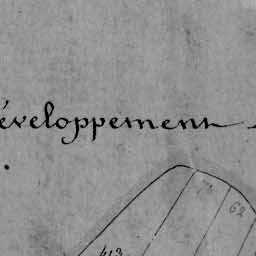 éveloppement
62
413